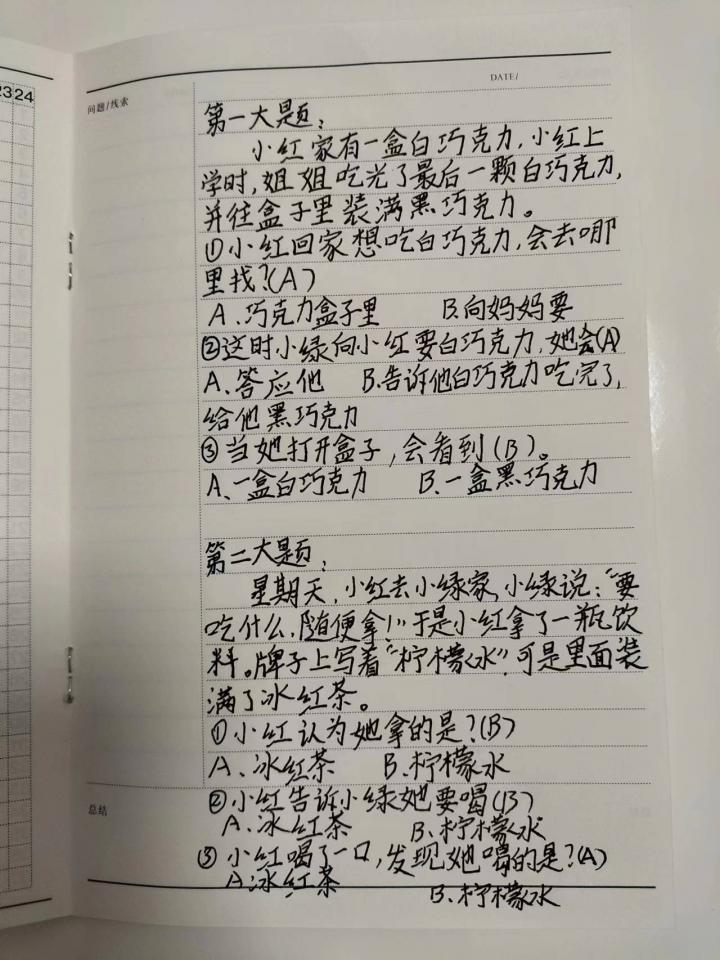 2324
问题/线索
DATE/
第一大题:
小红家有一盒白巧克力,小红上
学时,姐姐吃光了最后一颗白巧克力,
并往盒子里装满黑巧克力。
①小红回家想吃白巧克力,会去哪
里找?(A)
A、巧克力盒子里 B.向妈妈要
②这时小绿向小红要白巧克力,她会(A)
A、答应他 B.告诉他白巧克力吃完了,
给他黑巧克力
③当她打开盒子,会看到(B)。
A、一盒白巧克力 B、一盒黑巧克力
第二大题:
星期天,小红去小绿家,小绿说:“要
吃什么,随便拿!”于是小红拿了一瓶饮
料。牌子上写着“柠檬水”,可是里面装
满了冰红茶。
①小红认为她拿的是?(B)
A、冰红茶 B.柠檬水
②小红告诉小绿她要喝(B)
A、冰红茶 B、柠檬水
③小红喝了一口,发现她喝的是?(A)
A.冰红茶 B、柠檬水
总结